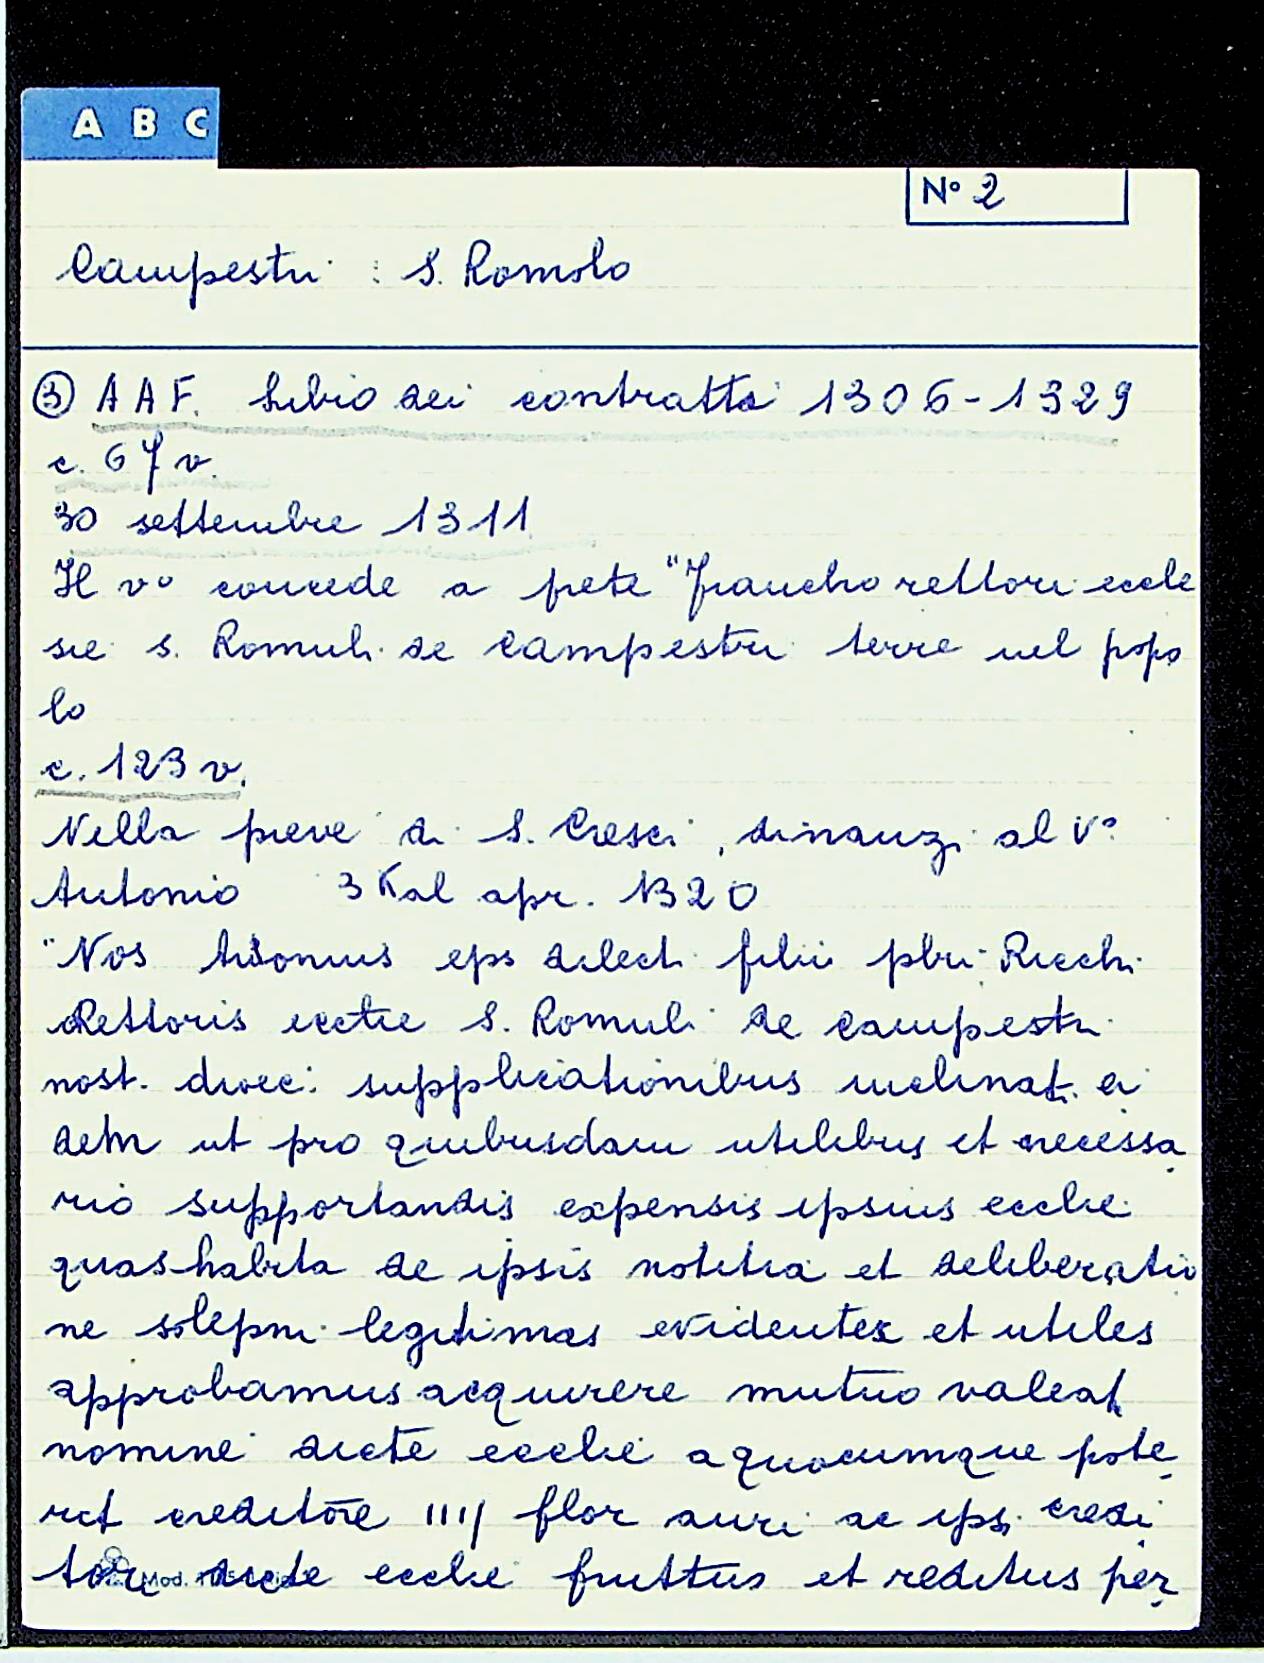 A B C
Nº 2
Campestri : S. Romolo
③ A A F. Libro dei contratti 1306-1329
c. 67 v.
30 settembre 1311
Il vº concede a prete "francho rettori eccle
sie s. Romuli de Campestri terre nel popo
lo
c. 123 v.
Nella pieve di S. Cresci, dinanzi al vº
Antonio 3 Kal apr. 1320
"Nos Antonius eps dilecti filii pbri Ricchi
Rettoris ecctie S. Romuli de Campestri
nost. dioec: supplicationibus inclinat. ei
dem ut pro quibusdam utilibus et necessa
rio supportandis expensis ipsius ecclie
quas habita de ipsis notitia et deliberatio
ne solepni legitimas evidentes et utiles
approbamus acquirere mutuo valeat
nomine dicte ecclie a quocumque pote
rit creditore IIII flor auri ac ips. credi
tori dicte ecclie fruttus et redditus per
Mod.